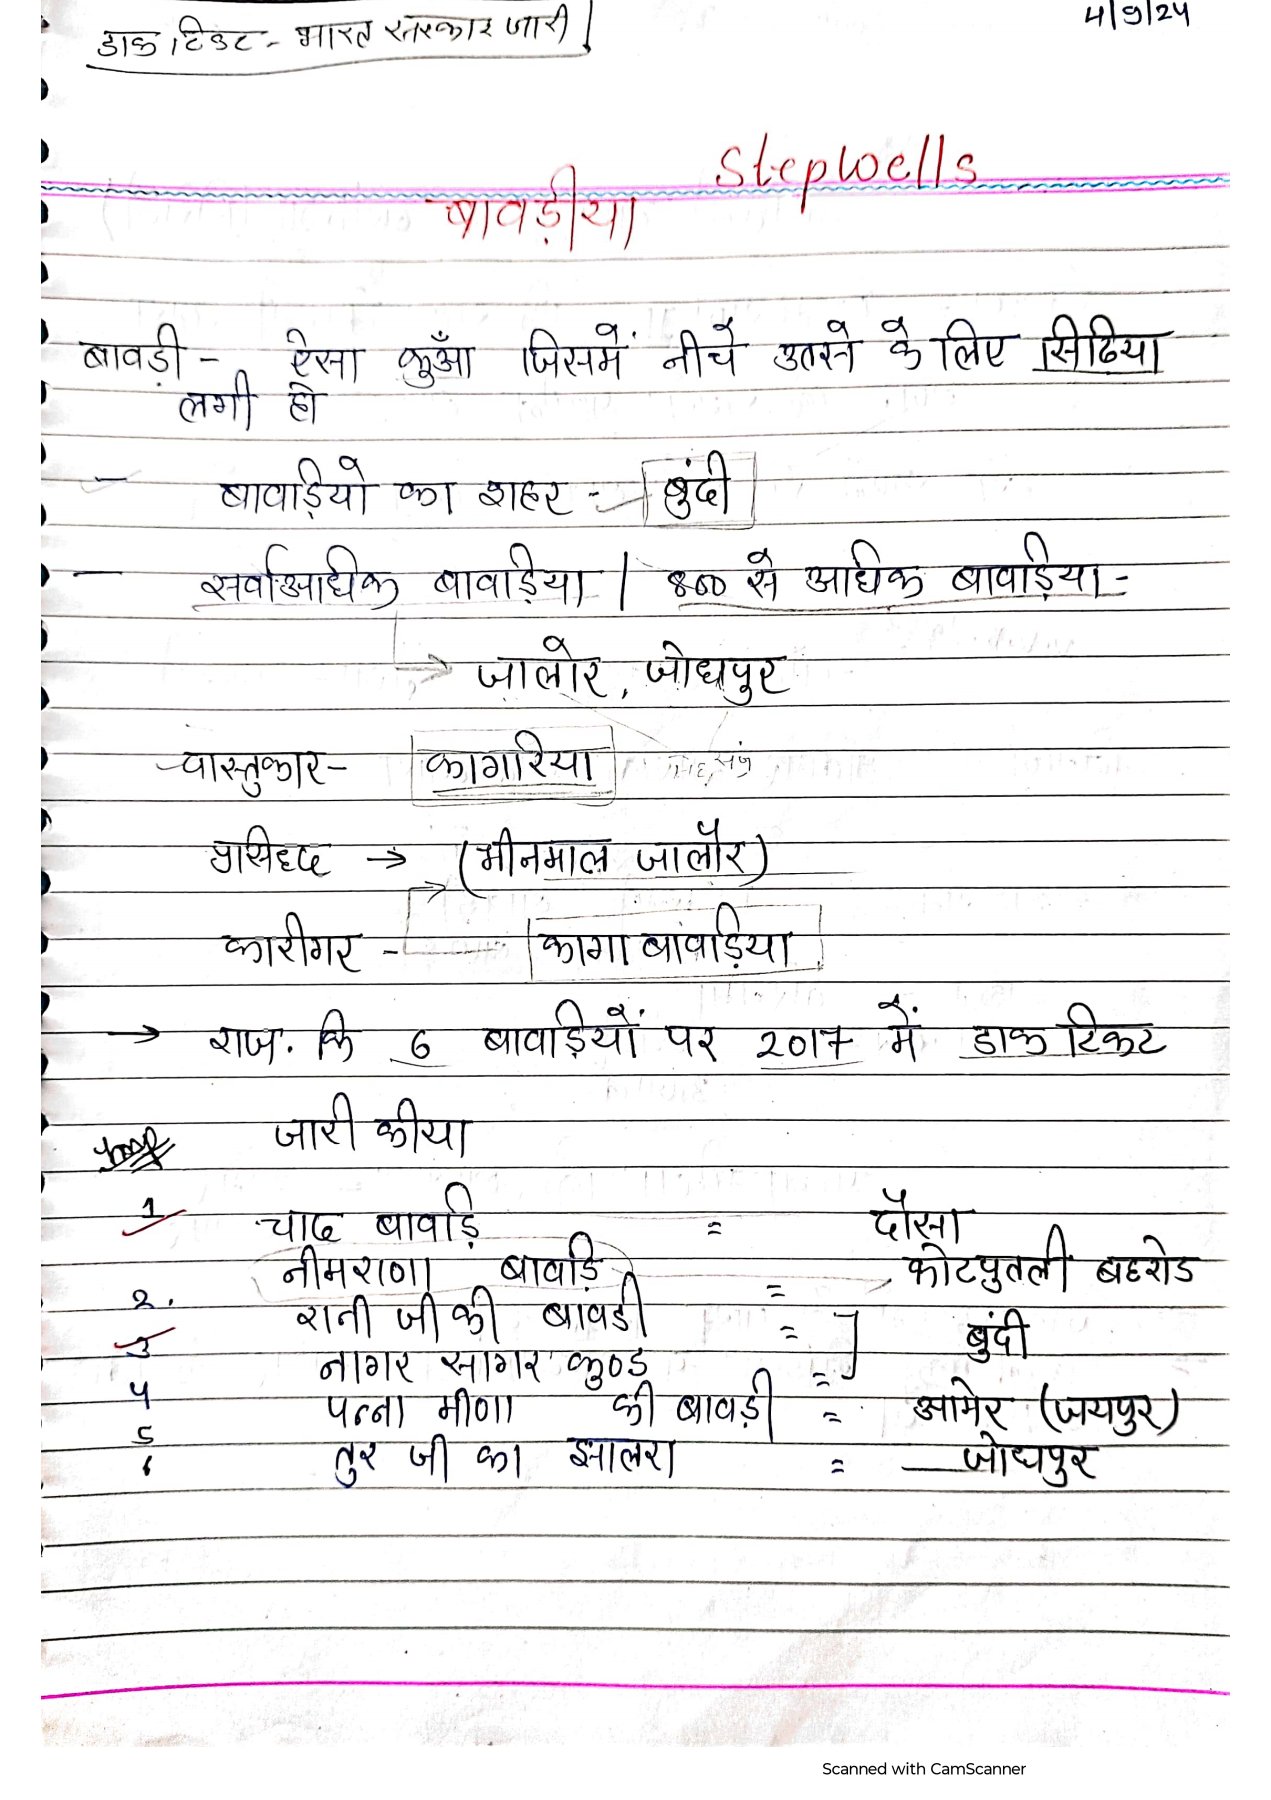 डाक टिकट - भारत सरकार जारी
4/9/24
Stepwells
बावड़ीया
बावड़ी - ऐसा कुआँ जिसमें नीचे उतरने के लिए सिढिया
लगी हो
- बावड़ियो का शहर - बुंदी
- सर्वाआधिक बावड़िया / 800 से आधिक बावड़िया -
→ जालोर, जोधपुर
वास्तुकार - कागारिया
प्रसिध्द → (भीनमाल जालौर)
कारीगर - कागा बावड़िया
→ राज. कि 6 बावड़ियों पर 2017 में डाक टिकट
जारी कीया
1 चाद बावड़ि = दौसा
2. नीमराणा बावड़ि = कोटपुतली बहरोड
3 रानी जी की बावडी = ] बुंदी
4 नागर सागर कुण्ड =
5 पन्ना मीणा की बावड़ी = आमेर (जयपुर)
6 तुर जी का झालरा = जोधपुर
Scanned with CamScanner